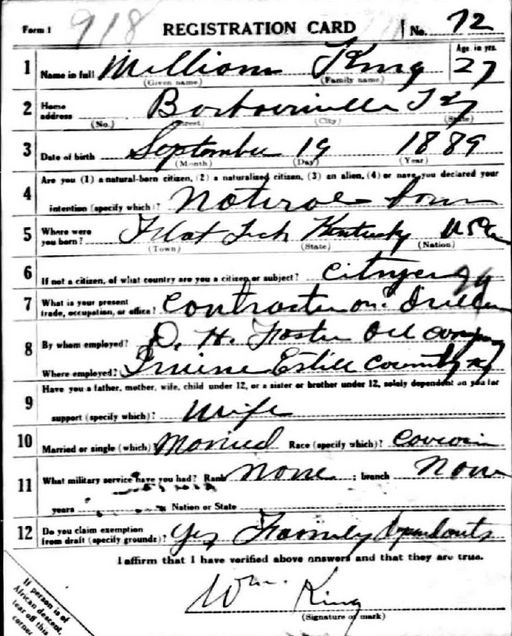 Form 1 918 REGISTRATION CARD No. 72
1 Name in full William King Age in yrs. 27
(Given name) (Family name)
2 Home address Barbourville Ky
(No.) (Street) (City) (State)
3 Date of birth September 19 1889
(Month) (Day) (Year)
4 Are you (1) a natural-born citizen, (2) a naturalized citizen, (3) an alien, (4) or have you declared your
intention (specify which)? Natural born
5 Where were you born? Flat Lick Kentucky USA
(Town) (State) (Nation)
6 If not a citizen, of what country are you a citizen or subject? Citizen
7 What is your present trade, occupation, or office? Contractor
8 By whom employed? D. H. Foster Oil
Where employed? Irvine Estill County Ky
9 Have you a father, mother, wife, child under 12, or a sister or brother under 12, solely dependent on you for
support (specify which)? Wife
10 Married or single (which)? Married Race (specify which)?
11 What military service have you had? Rank None ; branch None
years Nation or State
12 Do you claim exemption from draft (specify grounds)? Yes Family dependents
I affirm that I have verified above answers and that they are true.
Wm. King
(Signature or mark)
If person is of
African descent,
tear off this
corner